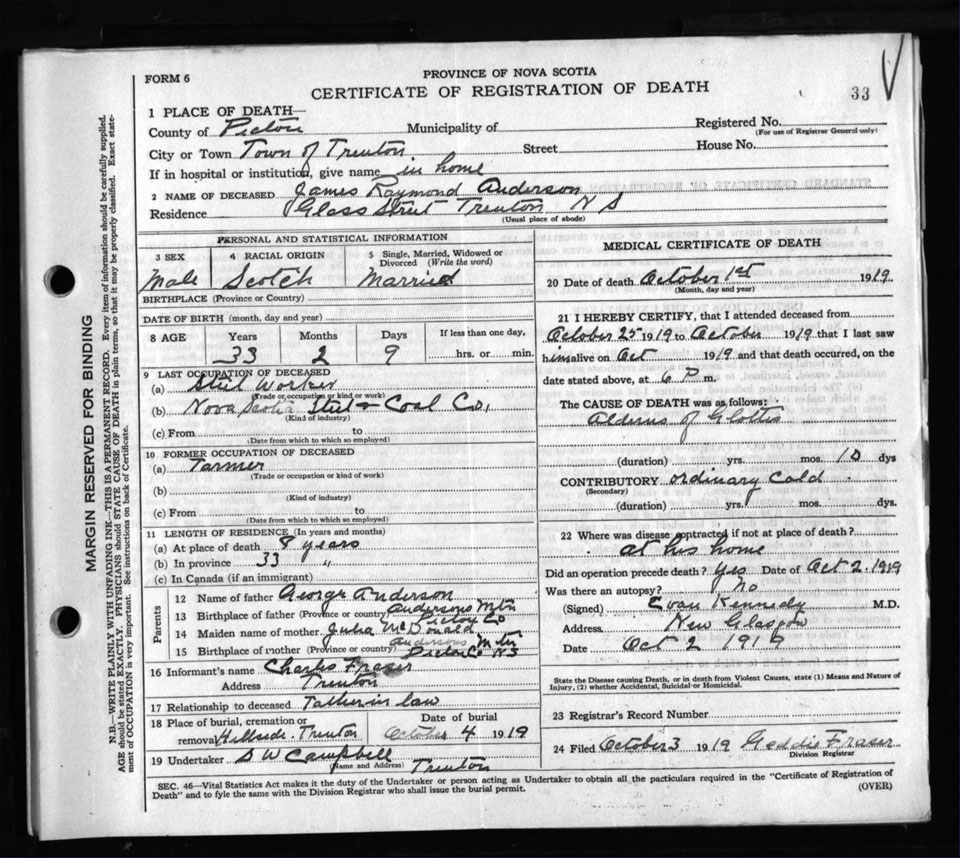 FORM 6
PROVINCE OF NOVA SCOTIA
CERTIFICATE OF REGISTRATION OF DEATH
33
1 PLACE OF DEATH—
County of Pictou Municipality of Registered No.
(For use of Registrar General only)
City or Town Town of Trenton Street House No.
If in hospital or institution, give name in home
2 NAME OF DECEASED James Raymond Anderson
Residence Glass Street Trenton N S
(Usual place of abode)
PERSONAL AND STATISTICAL INFORMATION
3 SEX 4 RACIAL ORIGIN 5 Single, Married, Widowed or Divorced (Write the word)
Male Scotch Married
BIRTHPLACE (Province or Country)
DATE OF BIRTH (month, day and year)
8 AGE Years Months Days If less than one day,
33 2 9 hrs. or min.
9 LAST OCCUPATION OF DECEASED
(a) Steel Worker
(Trade or occupation or kind of work)
(b) Nova Scotia Steel & Coal Co,
(Kind of industry)
(c) From to
(Date from which to which so employed)
10 FORMER OCCUPATION OF DECEASED
(a) Farmer
(Trade or occupation or kind of work)
(b)
(Kind of industry)
(c) From to
(Date from which to which so employed)
11 LENGTH OF RESIDENCE (In years and months)
(a) At place of death 8 years
(b) In province 33 "
(c) In Canada (if an immigrant)
Parents
12 Name of father George Anderson
13 Birthplace of father (Province or country) Andersons Mtn Pictou Co
14 Maiden name of mother Julia McDonald
15 Birthplace of mother (Province or country) Andersons Mtn Pictou Co N S
16 Informant's name Charles Fraser
Address Trenton
17 Relationship to deceased Father in law
18 Place of burial, cremation or removal Hillside Trenton Date of burial October 4 1919
19 Undertaker D W Campbell
(Name and Address) Trenton
MEDICAL CERTIFICATE OF DEATH
20 Date of death October 1st 1919
(Month, day and year)
21 I HEREBY CERTIFY, that I attended deceased from
October 25 1919 to October 1919 that I last saw
him alive on Oct 1919 and that death occurred, on the
date stated above, at 6 P m.
The CAUSE OF DEATH was as follows:
of Glottis
(duration) yrs. mos. 10 dys
CONTRIBUTORY ordinary cold
(Secondary)
(duration) yrs. mos. dys.
22 Where was disease contracted if not at place of death?
at his home
Did an operation precede death? Yes Date of Oct 2 1919
Was there an autopsy? No
(Signed) Evan Kennedy M.D.
Address New Glasgow
Date Oct 2 1919
State the Disease causing Death, or in death from Violent Causes, state (1) Means and Nature of
Injury, (2) whether Accidental, Suicidal or Homicidal.
23 Registrar's Record Number
24 Filed October 3 1919 Geddie Fraser
Division Registrar
SEC. 46—Vital Statistics Act makes it the duty of the Undertaker or person acting as Undertaker to obtain all the particulars required in the "Certificate of Registration of
Death" and to fyle the same with the Division Registrar who shall issue the burial permit.
(OVER)
MARGIN RESERVED FOR BINDING
N.B.—WRITE PLAINLY WITH UNFADING INK—THIS IS A PERMANENT RECORD. Every item of information should be carefully supplied.
AGE should be stated EXACTLY. PHYSICIANS should STATE CAUSE OF DEATH in plain terms, so that it may be properly classified. Exact state-
ment of OCCUPATION is very important. See instructions on back of Certificate.